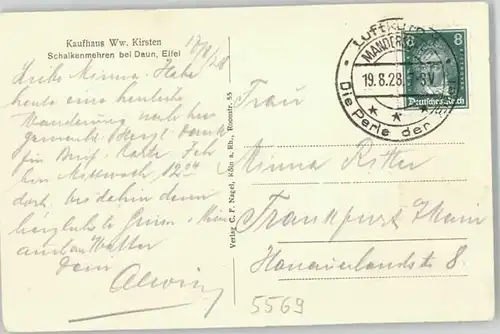 Kaufhaus Ww. Kirsten
Schalkenmehren bei Daun, Eifel
Liebe Minna. Habe
heute eine herrliche
Wanderung nach hier
gemacht. Herzl. Dank
für Brief. Karte.
Mittwoch 12 04
dort, bis dahin dann
herzlichste Grüsse.
Wetter
Dein
Alwin
Verlag C. F. Nagel, Köln a. Rh., Roonstr. 55
Luftkurort
MANDERS
19.8.28
Die Perle der
8
8
Deutsches Reich
Frau
Minna Ritter
Frankfurt /Main
Hanauerlandstr 8.
5569